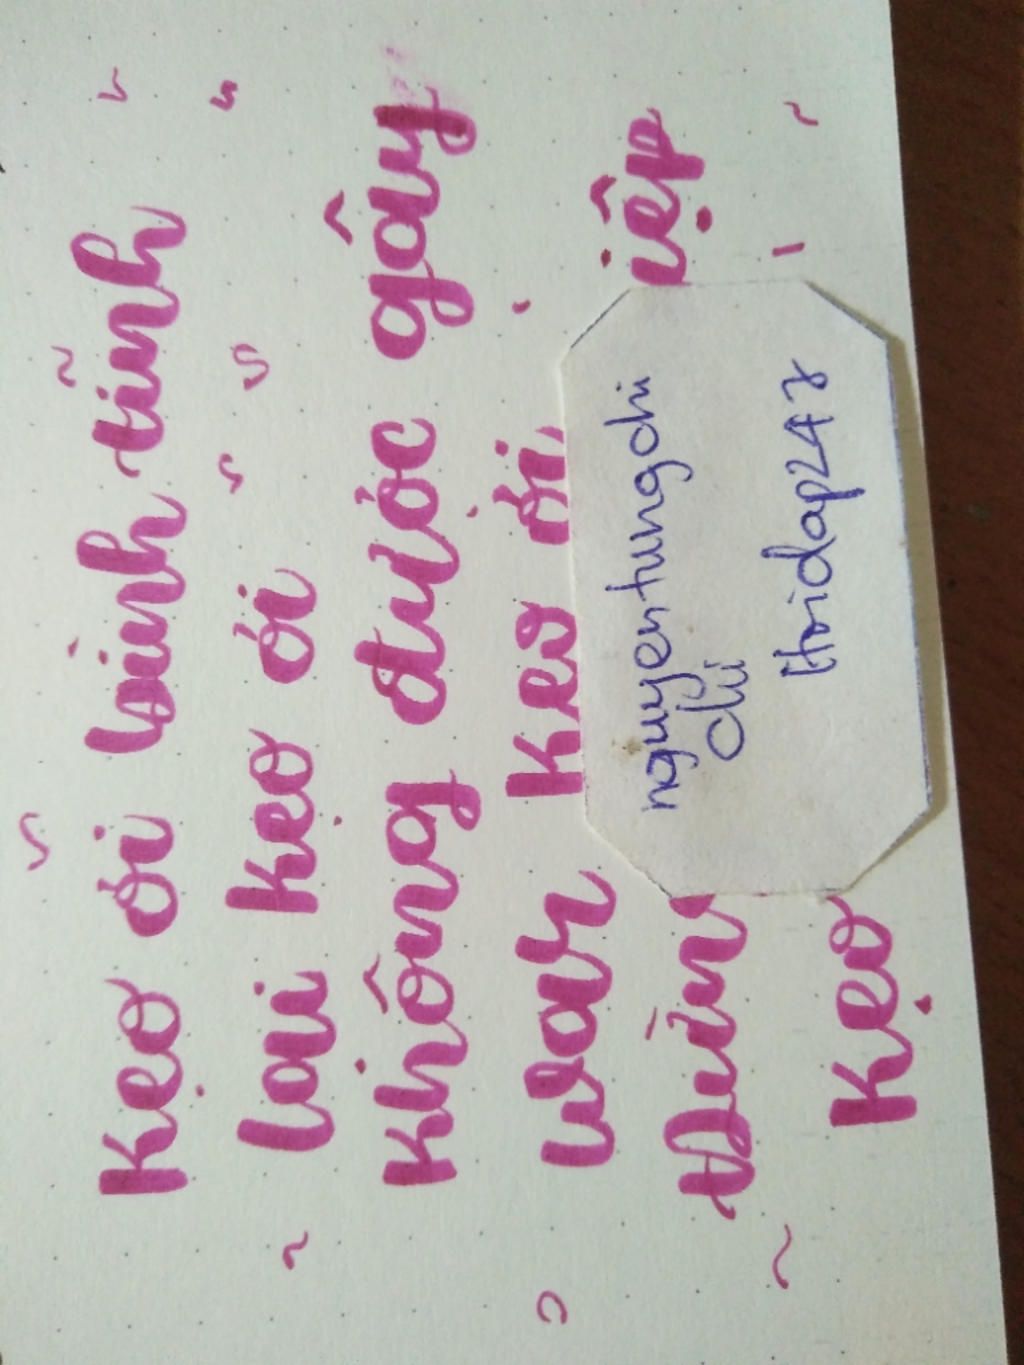 Kẹo ơi bình tĩnh
lại kẹo ơi
Không được gây
war Kẹo ơi,
Đừn iệp
Kẹo
nguyentungchi
chi
Hoidap247